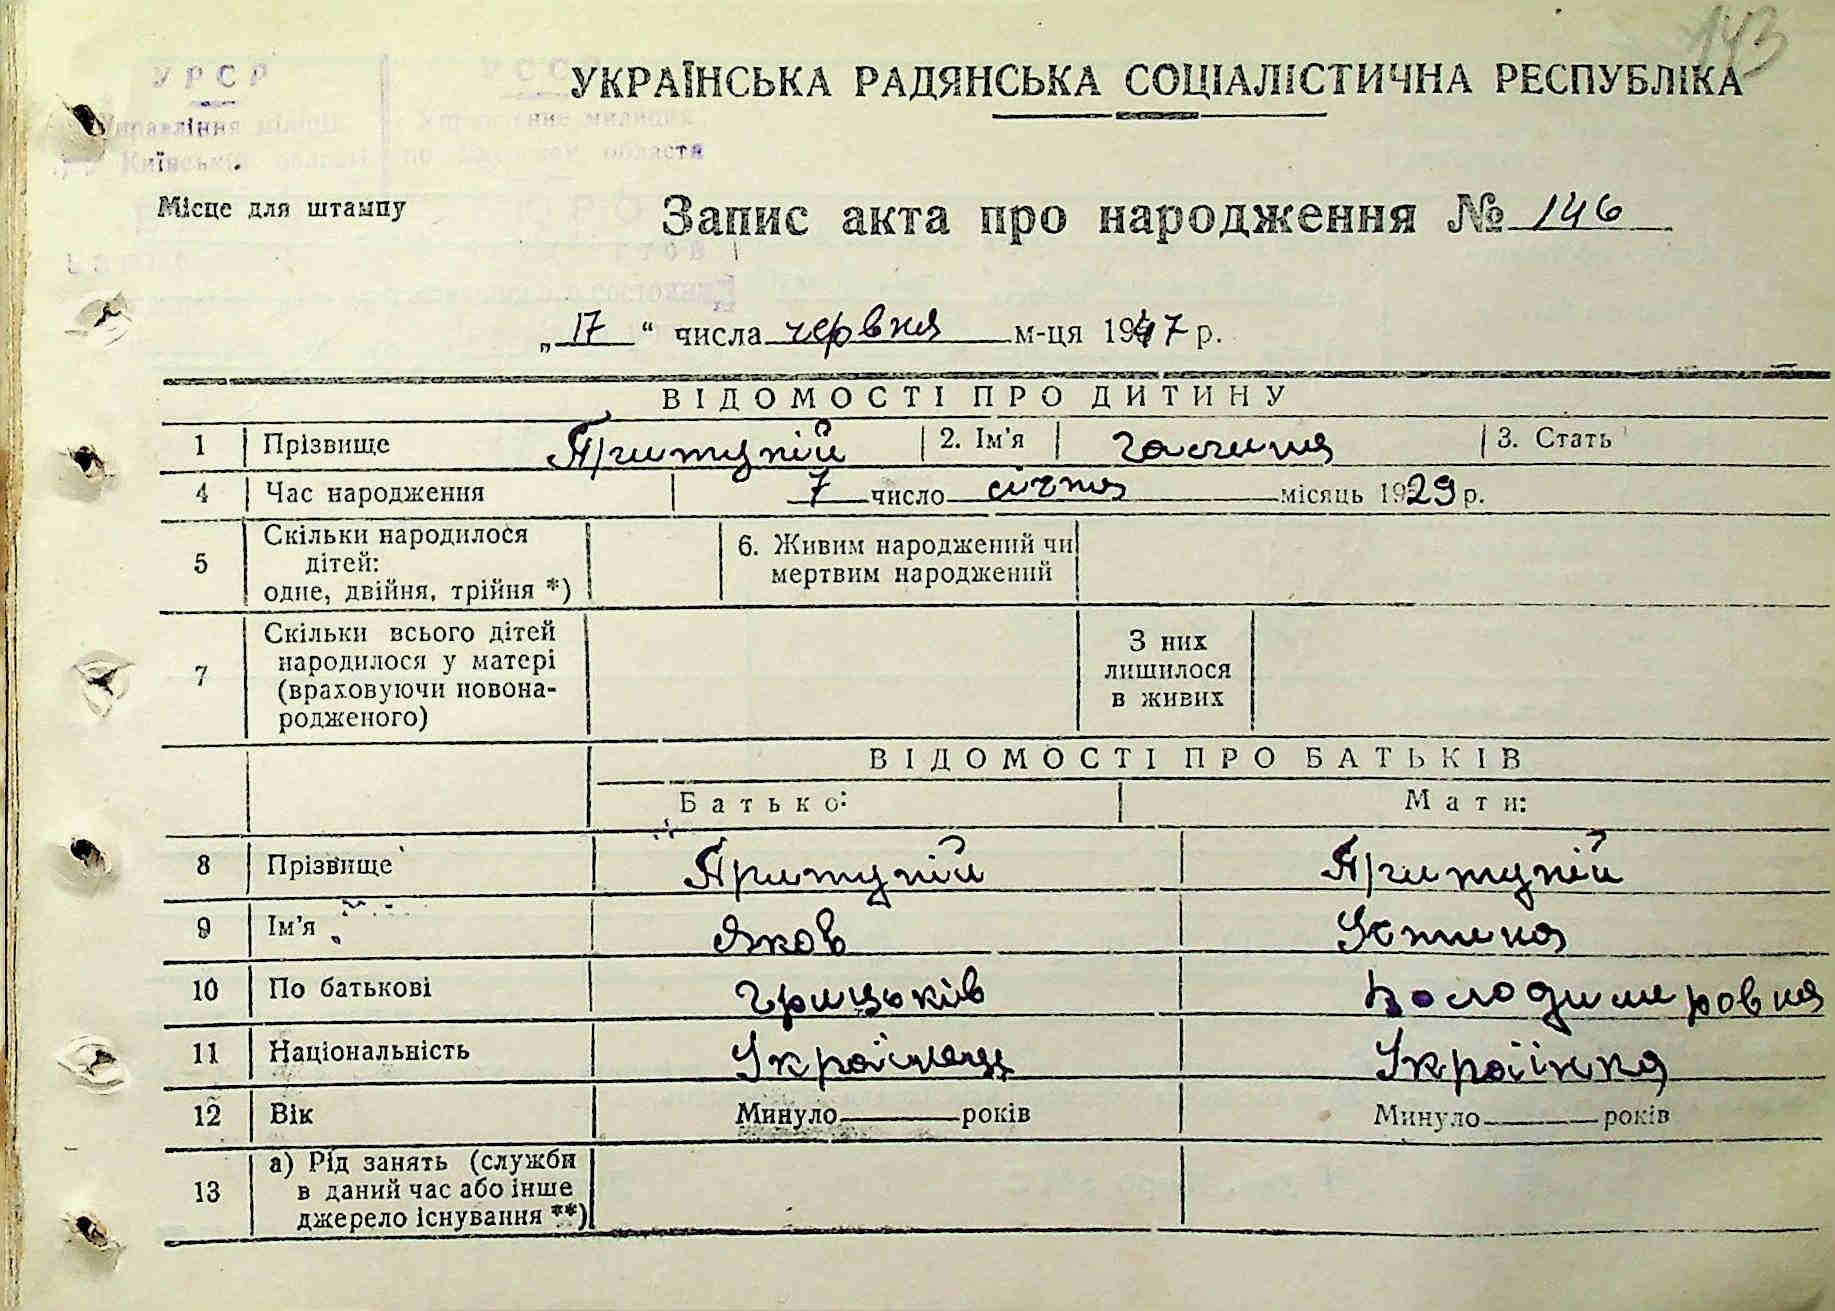 143
УРСР УССР
УКРАЇНСЬКА РАДЯНСЬКА СОЦІАЛІСТИЧНА РЕСПУБЛІКА
Управління міліції Управление милиции
Київській області по Киевской области
Місце для штампу
Запис акта про народження № 146
„17“ числа червня м-ця 1947 р.
ВІДОМОСТІ ПРО ДИТИНУ
1 Прізвище Притупій 2. Ім'я Галина 3. Стать
4 Час народження 7 число січня місяць 1929 р.
5 Скільки народилося дітей: одне, двійня, трійня *) 6. Живим народжений чи мертвим народжений
7 Скільки всього дітей народилося у матері (враховуючи новонародженого) З них лишилося в живих
ВІДОМОСТІ ПРО БАТЬКІВ
Батько: Мати:
8 Прізвище Притупій Притупій
9 Ім'я Яков Устина
10 По батькові Грицьків Володимировна
11 Національність Українец Україінка
12 Вік Минуло років Минуло років
13 а) Рід занять (служби в даний час або інше джерело існування **)